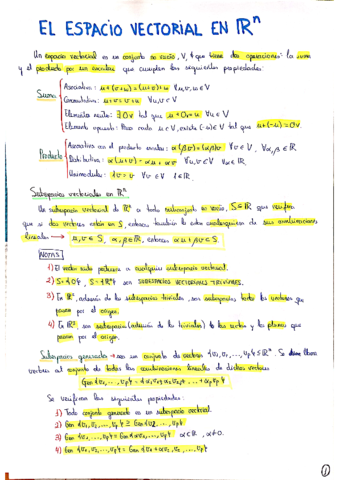 EL ESPACIO VECTORIAL EN ℝⁿ
Un espacio vectorial es un conjunto no vacío, V, y que tiene dos operaciones: la suma
y el producto por un escalar que cumplen las siguientes propiedades:
Suma
Asociativa: u+(v+w)=(u+v)+w ∀u,v,w∈V
Conmutativa: u+v=v+u ∀u,v∈V
Elemento neutro: ∃0v tal que u+0v=u ∀u∈V
Elemento opuesto: Para cada u∈V, existe (-u)∈V tal que u+(-u)=0v
Producto
Asociativa con el producto escalar: α(βv)=(αβ)v ∀v∈V, ∀α,β∈ℝ
Distributiva: α(u+v)=αu+αv ∀u,v∈V ∀α∈ℝ
Unimodular: 1v=v ∀v∈V 1∈ℝ.
Subespacios vectoriales en ℝⁿ.
Un subespacio vectorial de ℝⁿ a todo subconjunto no vacío, que verifica
que si dos vectores están en S, entonces también lo está cualquiera de sus combinaciones
lineales → u,v∈S, α,β∈ℝ, entonces αu+βv∈S.
NOTAS
1) El vector nulo pertenece a cualquier subespacio vectorial.
2) SUBESPACIOS VECTORIALES TRIVIALES.
3) En además de los subespacios triviales, son subespacios todos los vectores que
pasan por el origen.
4) En ℝ³, son subespacios (además de los triviales) las rectas y los planos que
pasan por el origen.
Subespacio generado → son un conjunto de vectores {v₁,v₂,...,vp}⊆ℝⁿ. Se llama
vectores al conjunto de todas las combinaciones lineales de dichos vectores
Gen{v₁,...,vp}={α₁v₁+α₂v₂+...+αpvp}
Se verifican las siguientes propiedades:
1) Todo conjunto generado es un subespacio vectorial.
2) Gen {v₁,v₂,...,vp} ⊇ Gen{v₂,...,vp}
3) Gen {v₁,...,vp}=Gen{αv₁,...,vp} α∈ℝ, α≠0.
4) Gen {v₁,v₂,...,vp}=Gen{v₁+αv₂,v₂,...,vp}
1